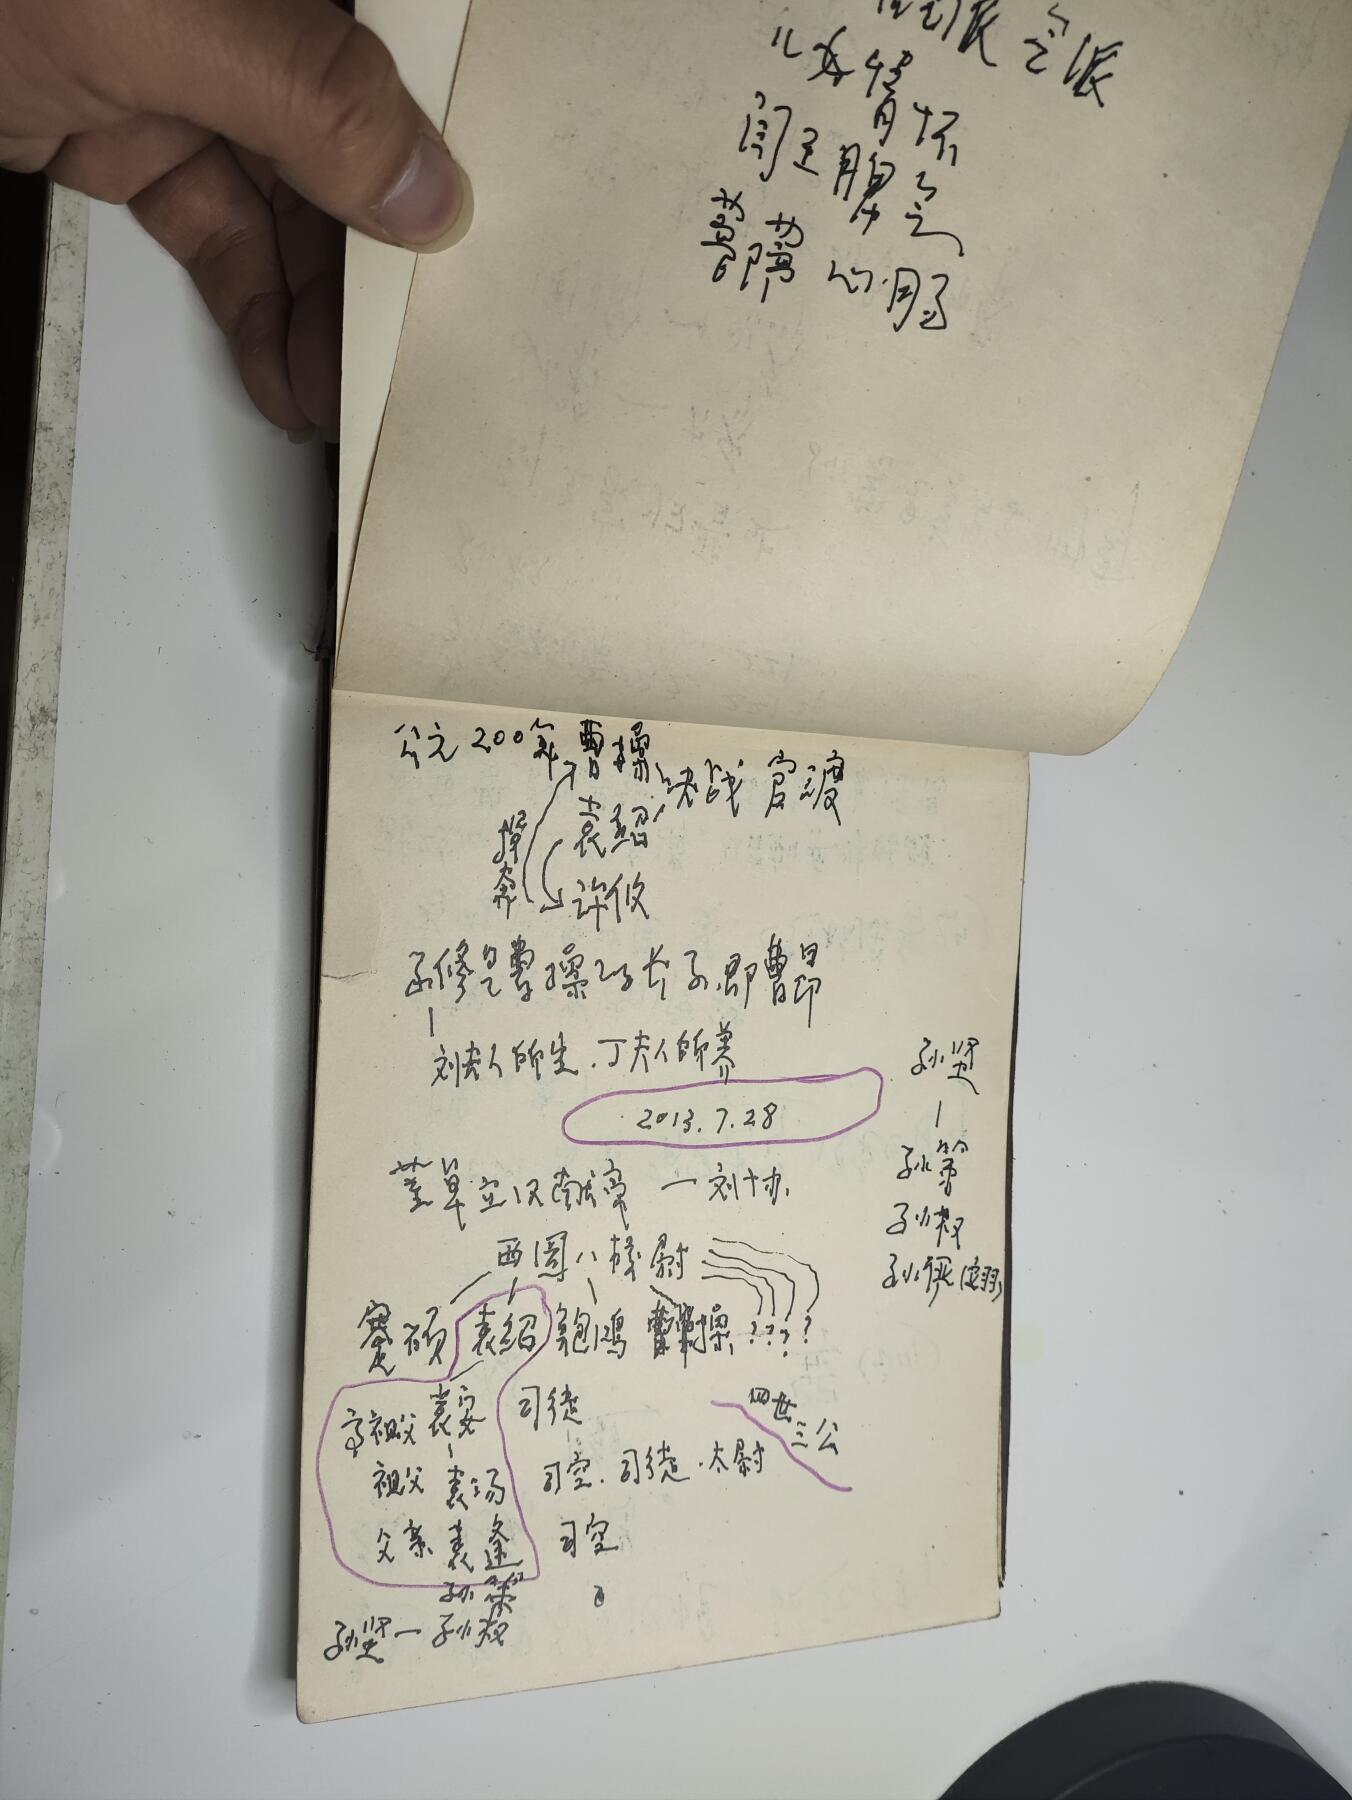 儿女情怀
公元200年 曹操 决战官渡
袁绍
投奔
许攸
子修是曹操的长子,即曹昂
刘夫人所生.丁夫人所养
2013.7.28
孙坚
孙策
孙权
孙俨(翊)
董卓立汉献帝 — 刘协
西园八校尉
蹇硕 袁绍 鲍鸿 曹操 ????
高祖父 袁安 司徒
四世三公
祖父 袁汤 司空.司徒.太尉
父亲 袁逢 司空
孙策
孙坚 — 孙权